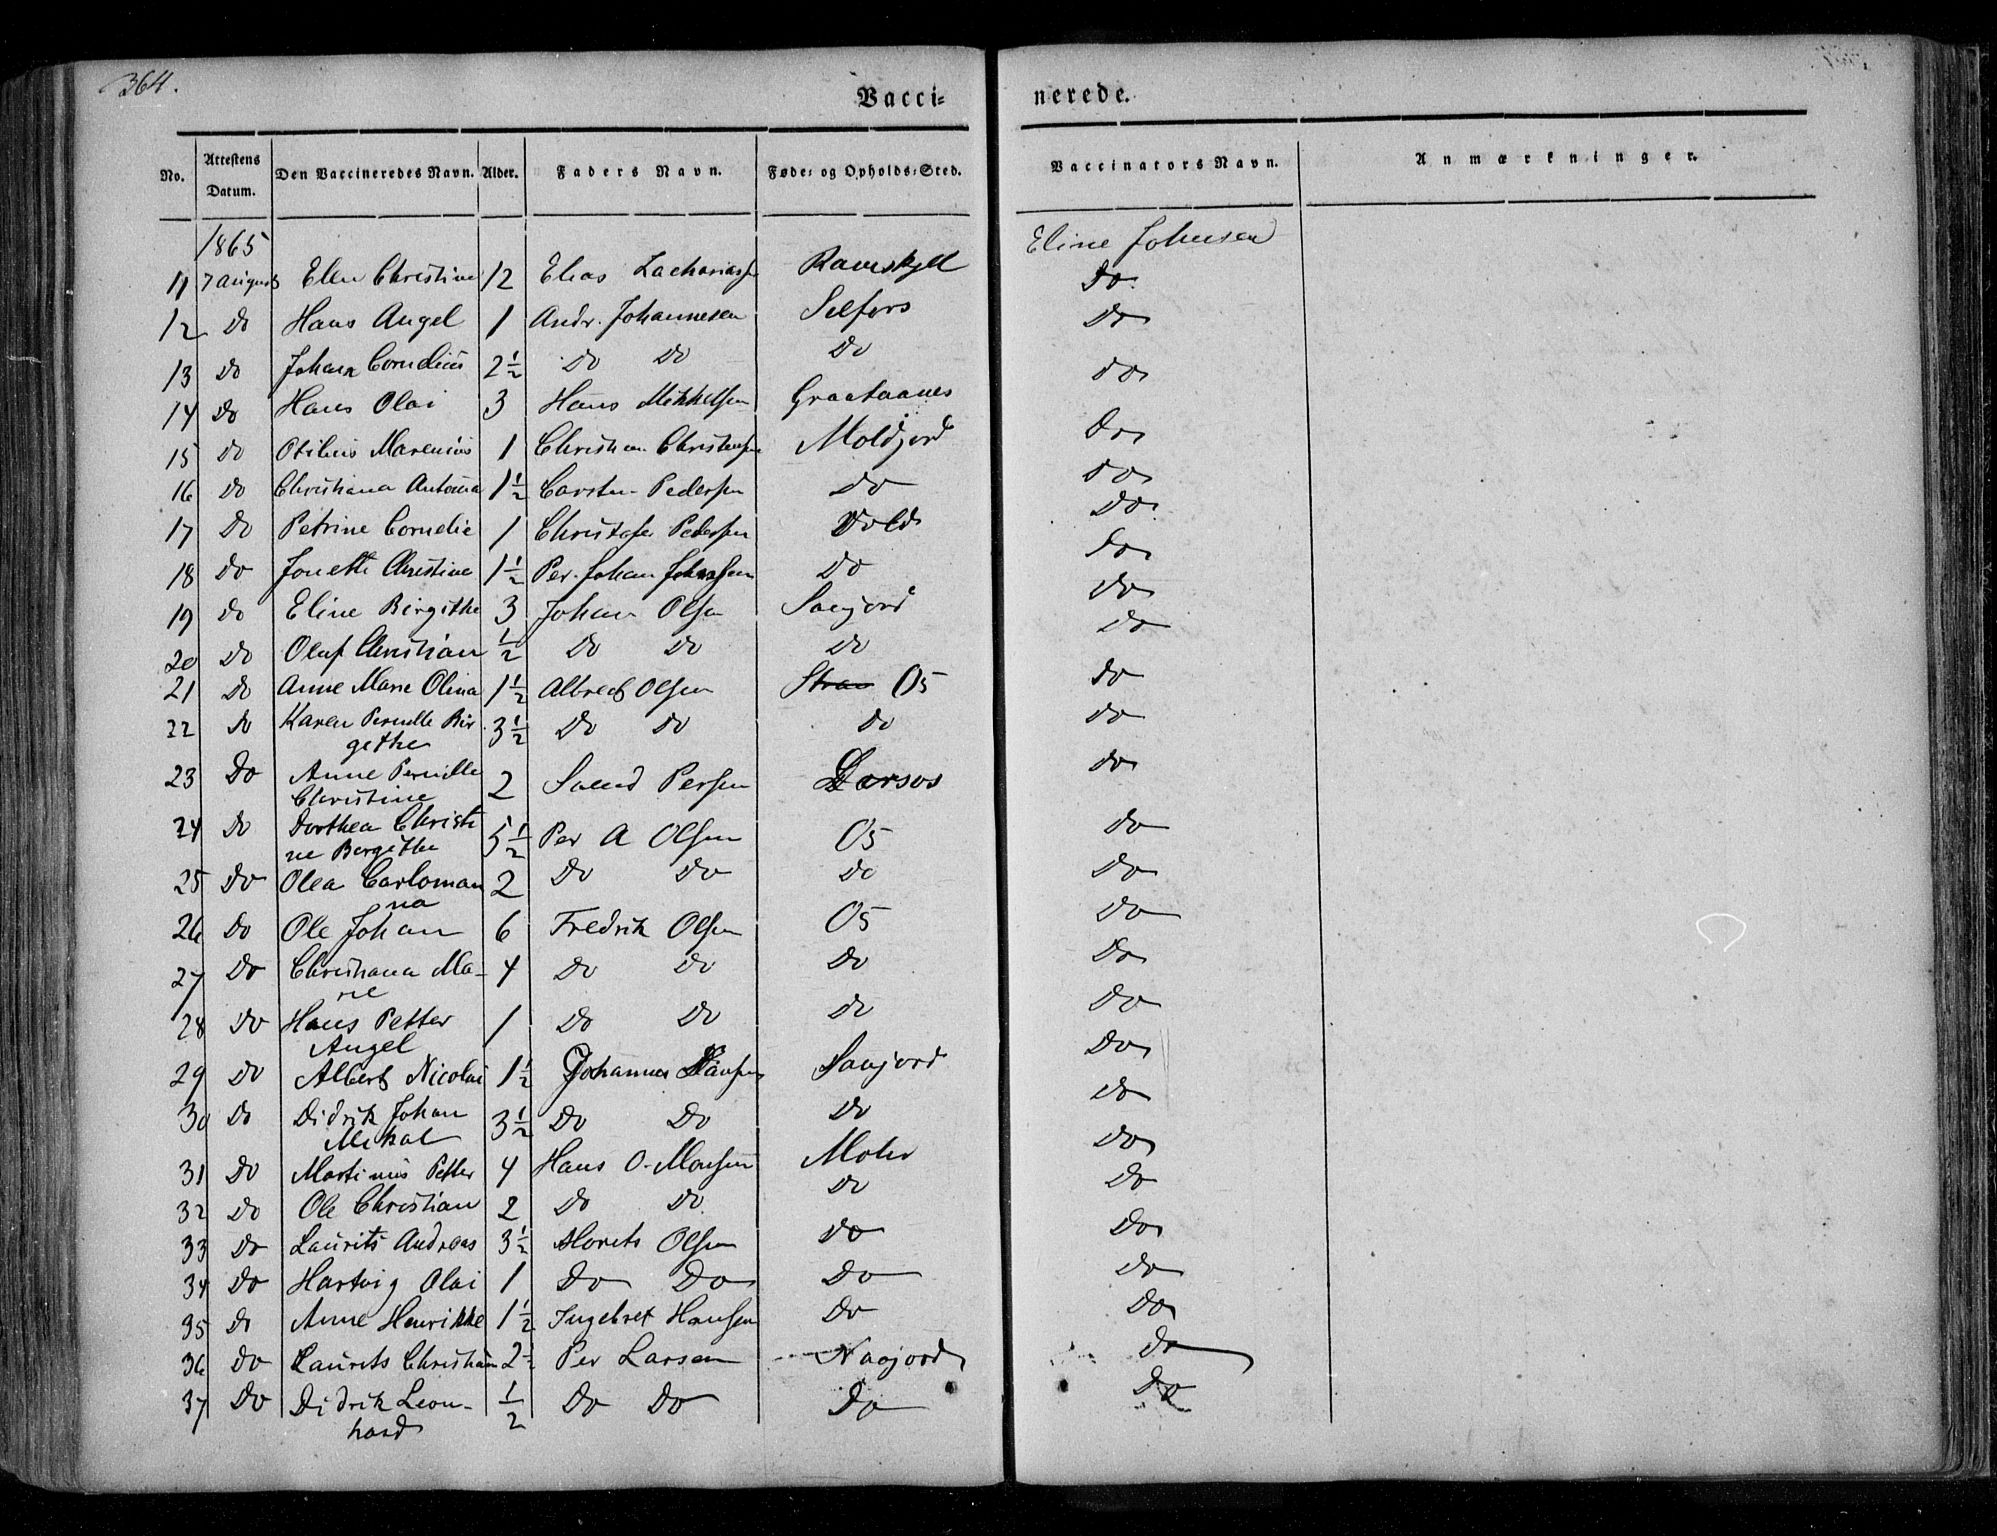 364.
Vacci-
nerede.
No. Attestens Datum. Den Vaccineredes Navn. Alder. Faders Navn. Føde- og Opholds-Sted. Vaccinators Navn. Anmærkninger.
1865 Eline Johnsen
11 7 August Ellen Christine 12 Elias Do
12 Do Hans Angel 1 Andr. Johannesen Selfors Do
13 Do Johan Cornelius 2½ Do Do Do Do
14 Do Hans Olai 3 Hans Mikkelsen Do
15 Do Marenius 1 Christian Moldjord Do
16 Do Christiana Antona 1½ Carsten Pedersen Do Do
17 Do Petrine Cornelie 1 Christofer Pedersen Vold Do
18 Do Christine 1½ Per. Johan Do Do
19 Do Eline Birgithe 3 Johan Olsen Do
20 Do Olaf Christian ½ Do Do Do Do
21 Do Anne Marie Olina 1½ Albrect Olsen Os Do
22 Do Karen Pernille Bir 3½ Do Do Do Do
gethe
23 Do Anne Pernille 2 Svend Persen Do
Christine
24 Do Dorthea Christi 5½ Per A Olsen Os Do
ne Bergithe
25 Do Olea Carloman 2 Do Do Do Do
na
26 Do Ole Johan 6 Fredrik Olsen Os Do
27 Do Christiana Ma- 4 Do Do Do Do
rie
28 Do Hans Petter 1 Do Do Do Do
Angel
29 Do Albert Nicolai 1½ Johannes Hansen Do
30 Do Didrik Johan 3½ Do Do Do Do
Mekal
31 Do Martinus Petter 4 Hans O. Monsen Do
32 Do Ole Christian 2 Do Do Do Do
33 Do Laurits Andreas 3½ Morets Olsen Do Do
34 Do Hartvig Olai 1 Do Do Do Do
35 Do Anne Henrikke 1½ Ingebret Hansen Do Do
36 Do Laurits Christian Per Larsen Do
37 Do Didrik Leon- ½ Do Do Do Do
hard